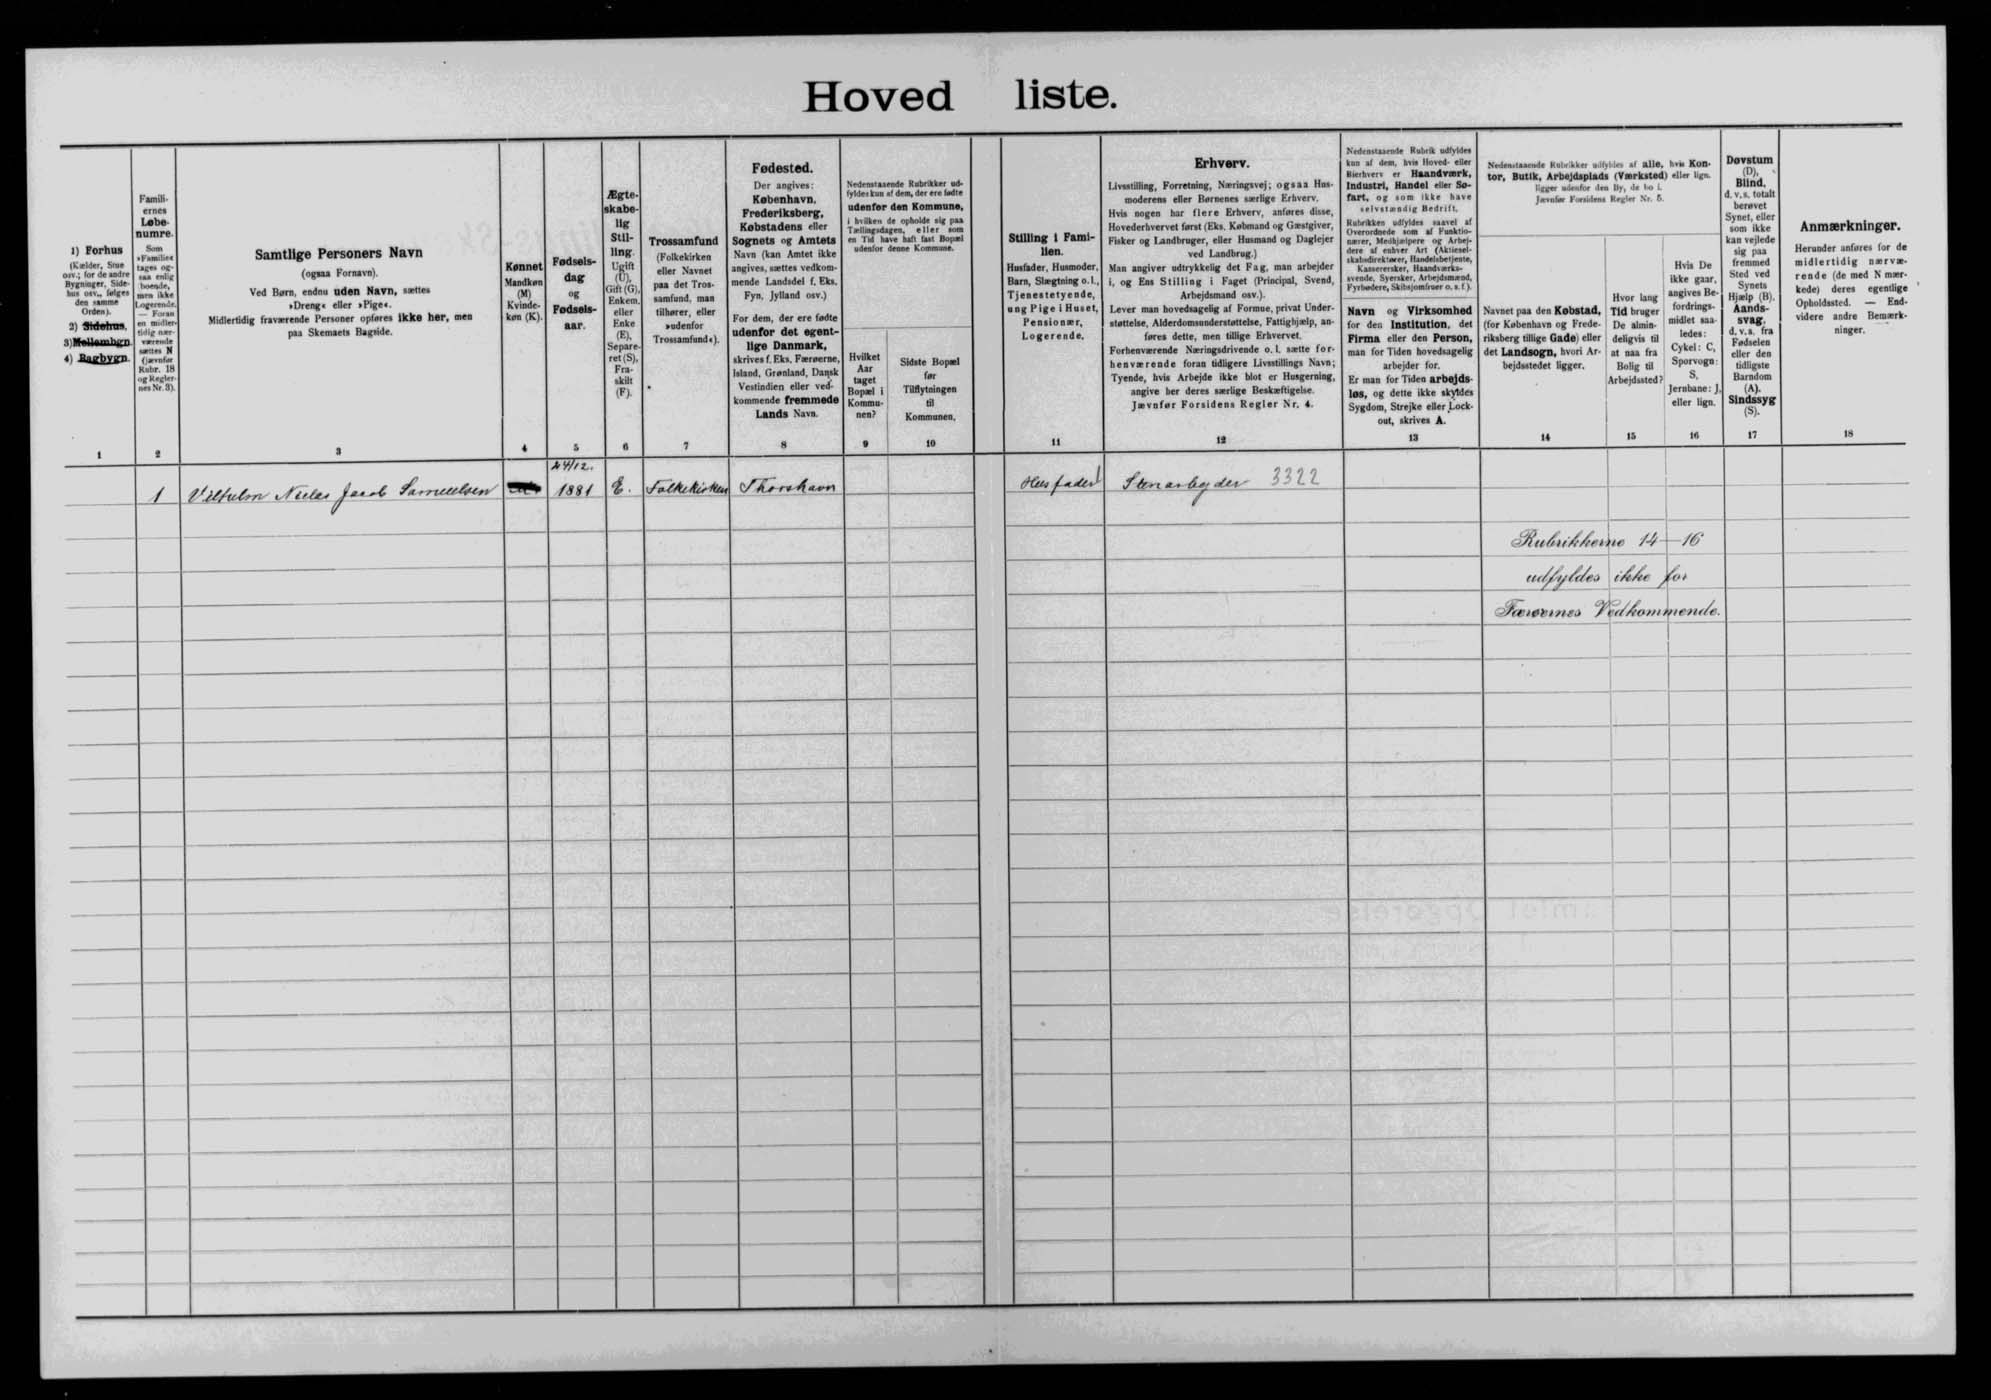 Hoved liste.
1) Forhus
(Kælder, Stue
osv.; for de andre
Bygninger, Side-
hus osv., følges
den samme
Orden).
2) Sidehus,
3) Mellembgn.
4) Bagbygn.
1
Famili-
ernes
Løbe-
numre.
Som
»Familie«
tages og-
saa enlig
boende,
men ikke
Logerende.
— Foran
en midler-
tidig nær-
værende
sættes N
(jævnfør
Rubr. 18
og Regler-
nes Nr. 3).
2
Samtlige Personers Navn
(ogsaa Fornavn).
Ved Børn, endnu uden Navn, sættes
»Dreng« eller »Pige«.
Midlertidig fraværende Personer opføres ikke her, men
paa Skemaets Bagside.
3
Kønnet
Mandkøn
(M)
Kvinde-
køn (K).
4
Fødsels-
dag
og
Fødsels-
aar.
5
Ægte-
skabe-
lig
Stil-
ling.
Ugift
(U),
Gift (G),
Enkem.
eller
Enke
(E),
Separe-
ret (S),
Fra-
skilt
(F).
6
Trossamfund
(Folkekirken
eller Navnet
paa det Tros-
samfund, man
tilhører, eller
»udenfor
Trossamfund«).
7
Fødested.
Der angives:
København,
Frederiksberg,
Købstadens eller
Sognets og Amtets
Navn (kan Amtet ikke
angives, sættes vedkom-
mende Landsdel f. Eks.
Fyn, Jylland osv.)
For dem, der ere fødte
udenfor det egent-
lige Danmark,
skrives f. Eks. Færøerne,
Island, Grønland, Dansk
Vestindien eller ved-
kommende fremmede
Lands Navn.
8
Nedenstaaende Rubrikker ud-
fyldes kun af dem, der ere fødte
udenfor den Kommune,
i hvilken de opholde sig paa
Tællingsdagen, eller som
en Tid have haft fast Bopæl
udenfor denne Kommune.
Hvilket
Aar
taget
Bopæl i
Kommu-
nen?
9
Sidste Bopæl
før
Tilflytningen
til
Kommunen.
10
Stilling i Fami-
lien.
Husfader, Husmoder,
Barn, Slægtning o. l.,
Tjenestetyende,
ung Pige i Huset,
Pensionær,
Logerende.
11
Erhverv.
Livsstilling, Forretning, Næringsvej; ogsaa Hus-
moderens eller Børnenes særlige Erhverv.
Hvis nogen har flere Erhverv, anføres disse,
Hovederhvervet først (Eks. Købmand og Gæstgiver,
Fisker og Landbruger, eller Husmand og Daglejer
ved Landbrug.)
Man angiver udtrykkelig det Fag, man arbejder
i, og Ens Stilling i Faget (Principal, Svend,
Arbejdsmand osv.).
Lever man hovedsagelig af Formue, privat Under-
støttelse, Alderdomsunderstøttelse, Fattighjælp, an-
føres dette, men tillige Erhvervet.
Forhenværende Næringsdrivende o. l. sætte for-
henværende foran tidligere Livsstillings Navn;
Tyende, hvis Arbejde ikke blot er Husgerning,
angive her deres særlige Beskæftigelse.
Jævnfør Forsidens Regler Nr. 4.
12
Nedenstaaende Rubrik udfyldes
kun af dem, hvis Hoved- eller
Bierhverv er Haandværk,
Industri, Handel eller Sø-
fart, og som ikke have
selvstændig Bedrift.
Rubrikken udfyldes saavel af
Overordnede som af Funktio-
nærer, Medhjælpere og Arbej-
dere af enhver Art (Aktiesel-
skabsdirektører, Handelsbetjente,
Kasserersker, Haandværks-
svende, Syersker, Arbejdsmænd,
Fyrbødere, Skibsjomfruer o. s. f.).
Navn og Virksomhed
for den Institution, det
Firma eller den Person,
man for Tiden hovedsagelig
arbejder for.
Er man for Tiden arbejds-
løs, og dette ikke skyldes
Sygdom, Strejke eller Lock-
out, skrives A.
13
Nedenstaaende Rubrikker udfyldes af alle, hvis Kon-
tor, Butik, Arbejdsplads (Værksted) eller lign.
ligger udenfor den By, de bo i.
Jævnfør Forsidens Regler Nr. 5.
Navnet paa den Købstad,
(for København og Frede-
riksberg tillige Gade) eller
det Landsogn, hvori Ar-
bejdsstedet ligger.
14
Hvor lang
Tid bruger
De almin-
deligvis til
at naa fra
Bolig til
Arbejdssted?
15
Hvis De
ikke gaar,
angives Be-
fordrings-
midlet saa-
ledes:
Cykel: C,
Sporvogn:
S,
Jernbane: J,
eller lign.
16
Døvstum
(D),
Blind,
d. v. s. totalt
berøvet
Synet, eller
som ikke
kan vejlede
sig paa
fremmed
Sted ved
Synets
Hjælp (B).
Aands-
svag,
d. v. s. fra
Fødselen
eller den
tidligste
Barndom
(A).
Sindssyg
(S).
17
Anmærkninger.
Herunder anføres for de
midlertidig nærvæ-
rende (de med N mær-
kede) deres egentlige
Opholdssted. — End-
videre andre Bemærk-
ninger.
18
1 Vilhelm Niclas Jacob Samuelsen 24/12. 1881 E. Folkekirken Thorshavn Husfader Stenarbejder 3322
Rubrikkerne 14—16
udfyldes ikke for
Færøernes Vedkommende.